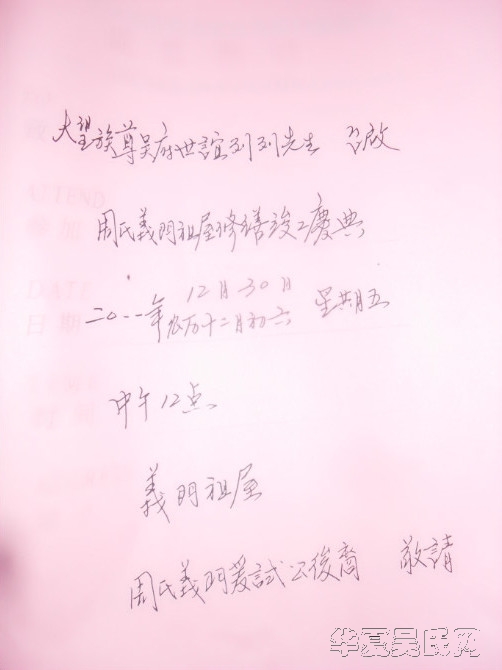 大望族尊吴府世誼列列先生 台啟
周氏義門祖屋修缮竣工慶典
二〇一一年 12月30日 农历十二月初六 星期五
中午12点
義門祖屋
周氏義門爰試公後裔 敬請
ATTEND
DATE
日期
华夏吴氏网